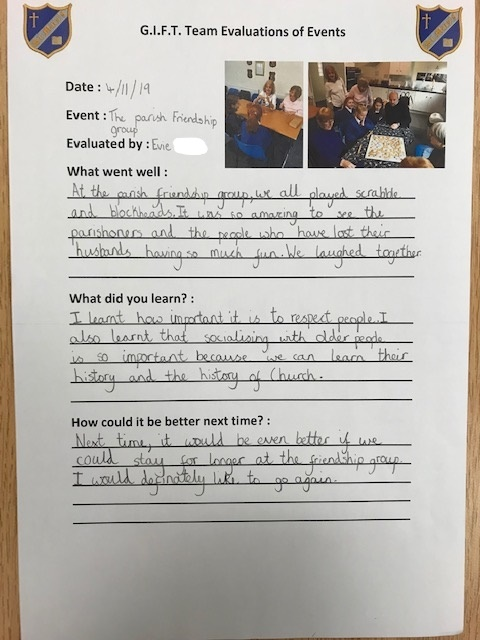 G.I.F.T. Team Evaluations of Events
Date : 4/11/19
Event : The parish Friendship
group
Evaluated by : Evie
What went well :
At the parish friendship group, we all played scrabble
and blockheads. It was so amazing to see the
parishoners and the people who have lost their
husbands having so much fun. We laughed together.
What did you learn? :
I learnt how important it is to respect people. I
also learnt that socialising with older people
is so important because we can learn their
history and the history of Church.
How could it be better next time? :
Next time, it would be even better if we
could stay for longer at the friendship group.
I would definately like to go again.